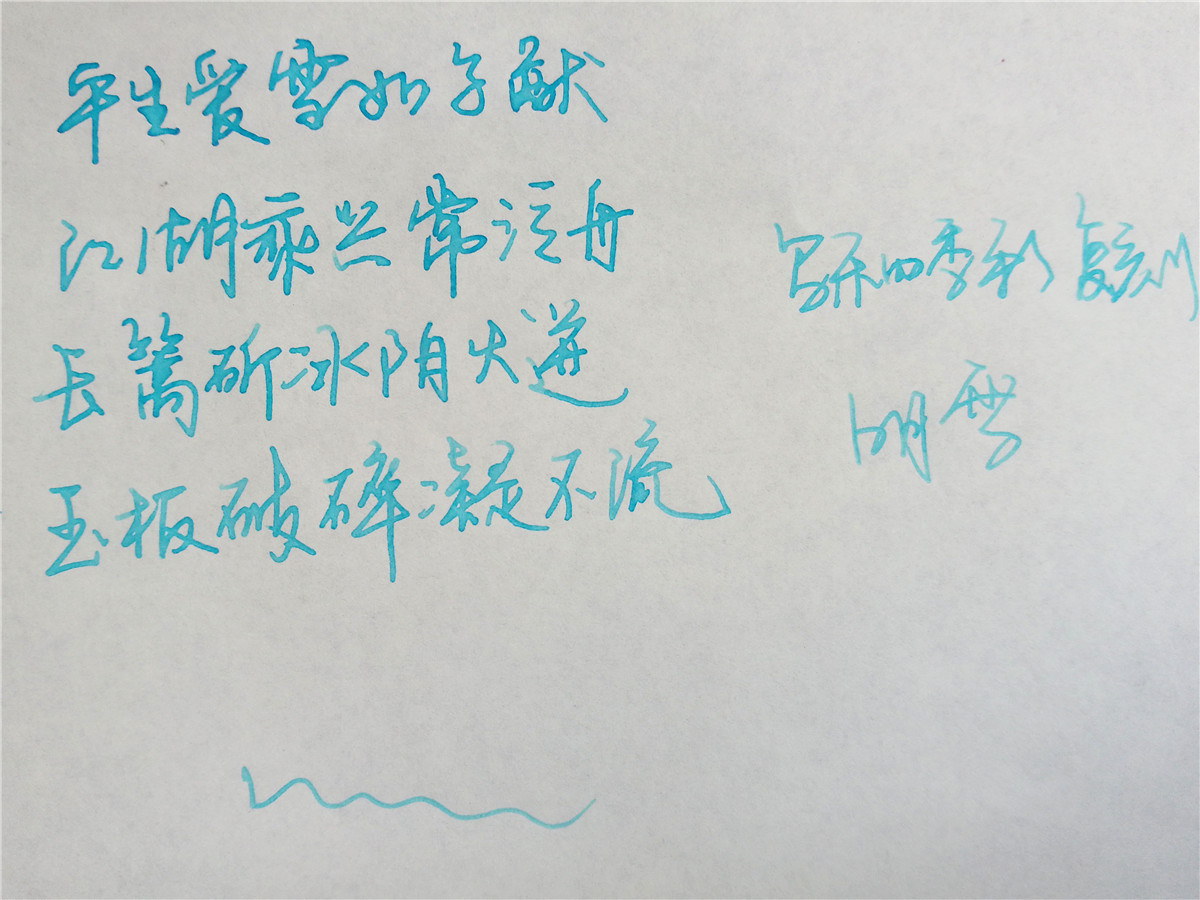 平生爱雪如子猷
江湖乘兴常泛舟
长篙斫冰阴火迸
玉板破碎凝不流
写乐四季彩 复刻
明雪